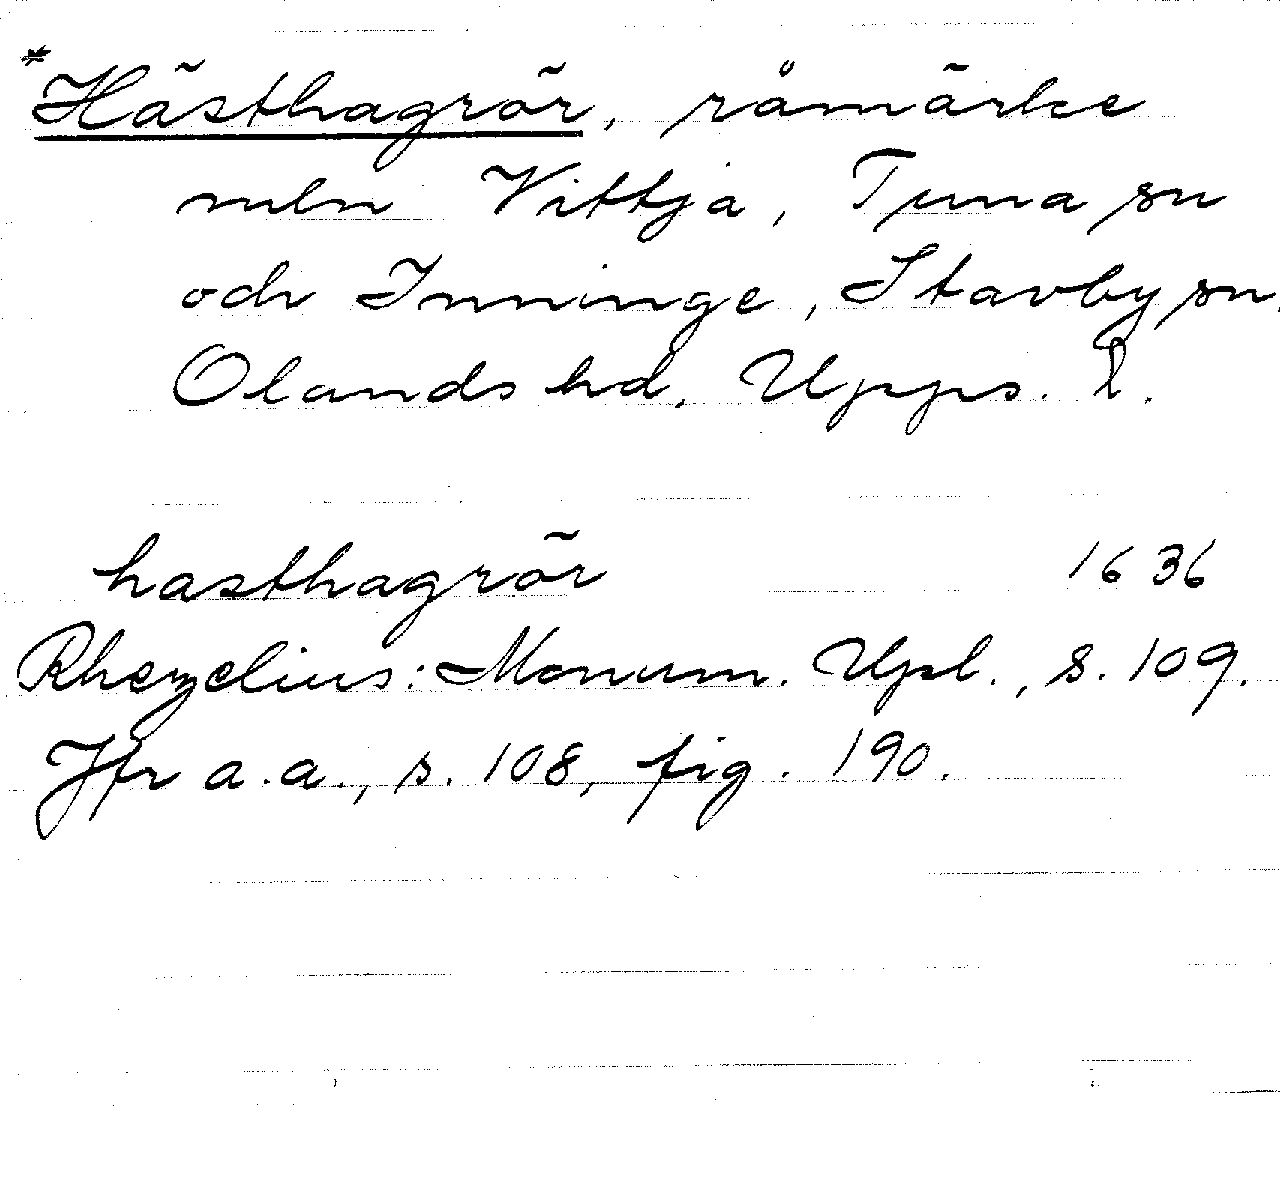 *Hästhagrör, råmärke
mln Vittja, Tuna sn
och Inninge, Stavby sn,
Olands hd, Upps. l.
hasthagrör 1636
Rhezelius: Monum. Upl., s. 109.
Jfr a.a., s. 108, fig. 190.